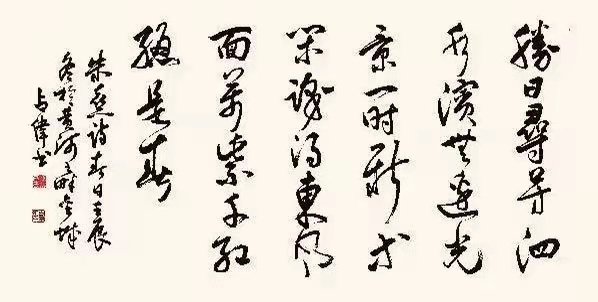 勝日尋芳泗
水濱無邊光
景一时新等
閑識得東風
面萬紫千紅
總是春
朱熹詩春日壬辰
冬於黄河畔金城
占偉书